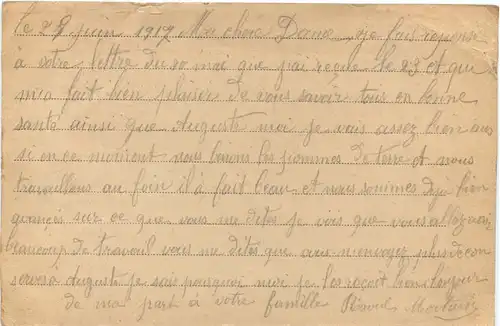 le 28 juin 1917 Ma chère Dame je fais réponse
à votre lettre du 20 mai que j'ai reçue le 23 et qui
m'a fait bien plaisir de vous savoir tous en bonne
santé ainsi que Auguste moi je vais assez bien aus
si en ce moment nous binons les pommes de terre et nous
travaillons au foin il a fait beau et nous sommes déjà bien
avancés sur ce que vous me dites je vois que vous allez avoir
beaucoup de travail vous me dites que vous n'envoyez plus de con
serves à Auguste je sais pourquoi moi je les reçoit bien toujour
de ma part à votre famille